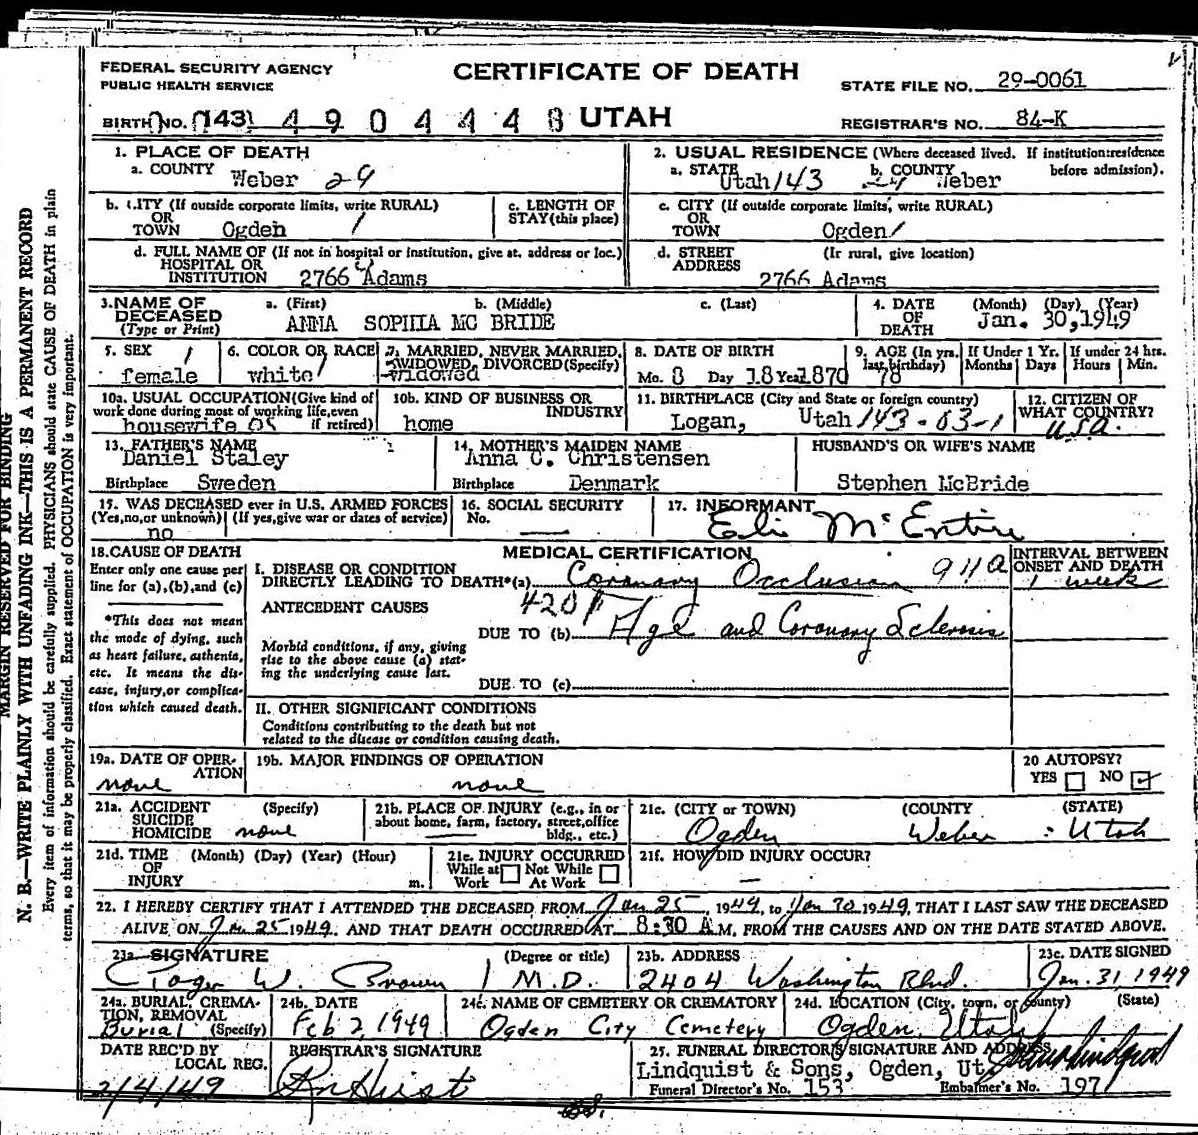 FEDERAL SECURITY AGENCY
PUBLIC HEALTH SERVICE
CERTIFICATE OF DEATH
STATE FILE NO. 29-0061
BIRTH NO. (143) 4 9 0 4 4 4 8 UTAH
REGISTRAR'S NO. 84-K
1. PLACE OF DEATH
a. COUNTY Weber 29
2. USUAL RESIDENCE (Where deceased lived. If institution: residence before admission).
a. STATE Utah 143 b. COUNTY 29 Weber
b. CITY (If outside corporate limits, write RURAL)
OR
TOWN Ogden 1
c. LENGTH OF
STAY (this place)
c. CITY (If outside corporate limits, write RURAL)
OR
TOWN Ogden 1
d. FULL NAME OF (If not in hospital or institution, give st. address or loc.)
HOSPITAL OR
INSTITUTION 2766 Adams
d. STREET (If rural, give location)
ADDRESS 2766 Adams
3. NAME OF DECEASED
(Type or Print)
a. (First) b. (Middle) c. (Last)
ANNA SOPHIA MC BRIDE
4. DATE OF DEATH (Month) (Day) (Year)
Jan. 30, 1949
5. SEX 1
female
6. COLOR OR RACE
white 1
7. MARRIED, NEVER MARRIED,
WIDOWED, DIVORCED (Specify)
widowed
8. DATE OF BIRTH
Mo. 8 Day 18 Year 1870
9. AGE (In yrs. last birthday)
78
If Under 1 Yr.
Months Days
If under 24 hrs.
Hours Min.
10a. USUAL OCCUPATION (Give kind of
work done during most of working life, even
if retired)
housewife
10b. KIND OF BUSINESS OR
INDUSTRY
home
11. BIRTHPLACE (City and State or foreign country)
Logan, Utah 143-03-1
12. CITIZEN OF
WHAT COUNTRY?
U.S.A.
13. FATHER'S NAME
Daniel Staley
Birthplace Sweden
14. MOTHER'S MAIDEN NAME
Anna C. Christensen
Birthplace Denmark
HUSBAND'S OR WIFE'S NAME
Stephen McBride
15. WAS DECEASED ever in U.S. ARMED FORCES
(Yes, no, or unknown) (If yes, give war or dates of service)
no
16. SOCIAL SECURITY
No.
17. INFORMANT
Eli McEntire
18. CAUSE OF DEATH
Enter only one cause per
line for (a), (b), and (c)
*This does not mean
the mode of dying, such
as heart failure, asthenia,
etc. It means the dis-
ease, injury, or complica-
tion which caused death.
MEDICAL CERTIFICATION
INTERVAL BETWEEN
ONSET AND DEATH
I. DISEASE OR CONDITION
DIRECTLY LEADING TO DEATH*(a) Coronary Occlusion 911a 1 week
ANTECEDENT CAUSES 4201
DUE TO (b) Age and Coronary Sclerosis
Morbid conditions, if any, giving
rise to the above cause (a) stat-
ing the underlying cause last.
DUE TO (c)
II. OTHER SIGNIFICANT CONDITIONS
Conditions contributing to the death but not
related to the disease or condition causing death.
19a. DATE OF OPER-
ATION
none
19b. MAJOR FINDINGS OF OPERATION
none
20 AUTOPSY?
YES NO
21a. ACCIDENT (Specify)
SUICIDE
HOMICIDE none
21b. PLACE OF INJURY (e.g., in or
about home, farm, factory, street, office
bldg., etc.)
21c. (CITY or TOWN) (COUNTY (STATE)
Ogden Weber Utah
21d. TIME (Month) (Day) (Year) (Hour)
OF
INJURY m.
21e. INJURY OCCURRED
While at Not While
Work At Work
21f. HOW DID INJURY OCCUR?
22. I HEREBY CERTIFY THAT I ATTENDED THE DECEASED FROM Jan 25, 1949, to Jan 30 1949, THAT I LAST SAW THE DECEASED
ALIVE ON Jan 25 1949, AND THAT DEATH OCCURRED AT 8:30 A M, FROM THE CAUSES AND ON THE DATE STATED ABOVE.
23a. SIGNATURE (Degree or title)
Roger W. Brown M.D.
23b. ADDRESS
2404 Washington Blvd.
23c. DATE SIGNED
Jan. 31 1949
24a. BURIAL, CREMA-
TION, REMOVAL
(Specify)
Burial
24b. DATE
Feb 2, 1949
24c. NAME OF CEMETERY OR CREMATORY
Ogden City Cemetery
24d. LOCATION (City, town, or county) (State)
Ogden, Utah
DATE REC'D BY
LOCAL REG.
2/4/49
REGISTRAR'S SIGNATURE
25. FUNERAL DIRECTOR'S SIGNATURE AND ADDRESS
Lindquist & Sons, Ogden, Ut.
Funeral Director's No. 153 Embalmer's No. 197
MARGIN RESERVED FOR BINDING
N. B.—WRITE PLAINLY WITH UNFADING INK—THIS IS A PERMANENT RECORD
Every item of information should be carefully supplied. PHYSICIANS should state CAUSE OF DEATH in plain
terms, so that it may be properly classified. Exact statement of OCCUPATION is very important.